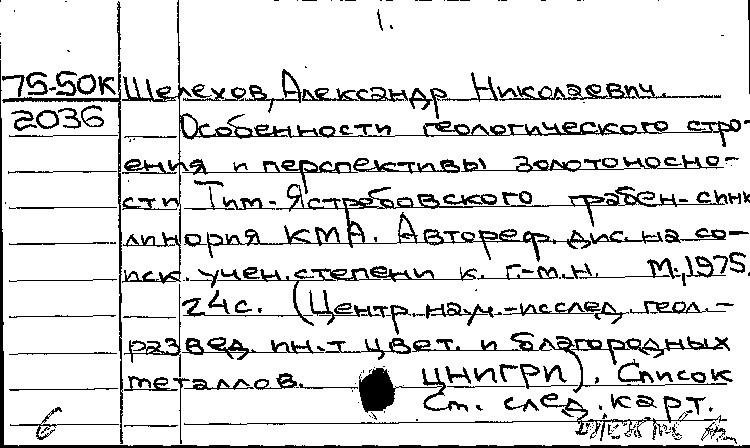 1.
75-50К Шелехов, Александр Николаевич.
2036 Особенности геологического стро-
ения и перспективы золотоносно-
сти Тим-Ястребовского грабен-синк
линория КМА. Автореф. дис. на со-
иск. учен. степени к. г.-м.н. М., 1975.
24с. (Центр. науч.-исслед. геол.-
развед. ин-т цвет. и благородных
металлов. ЦНИГРИ). Список
6 Ст. след. карт.